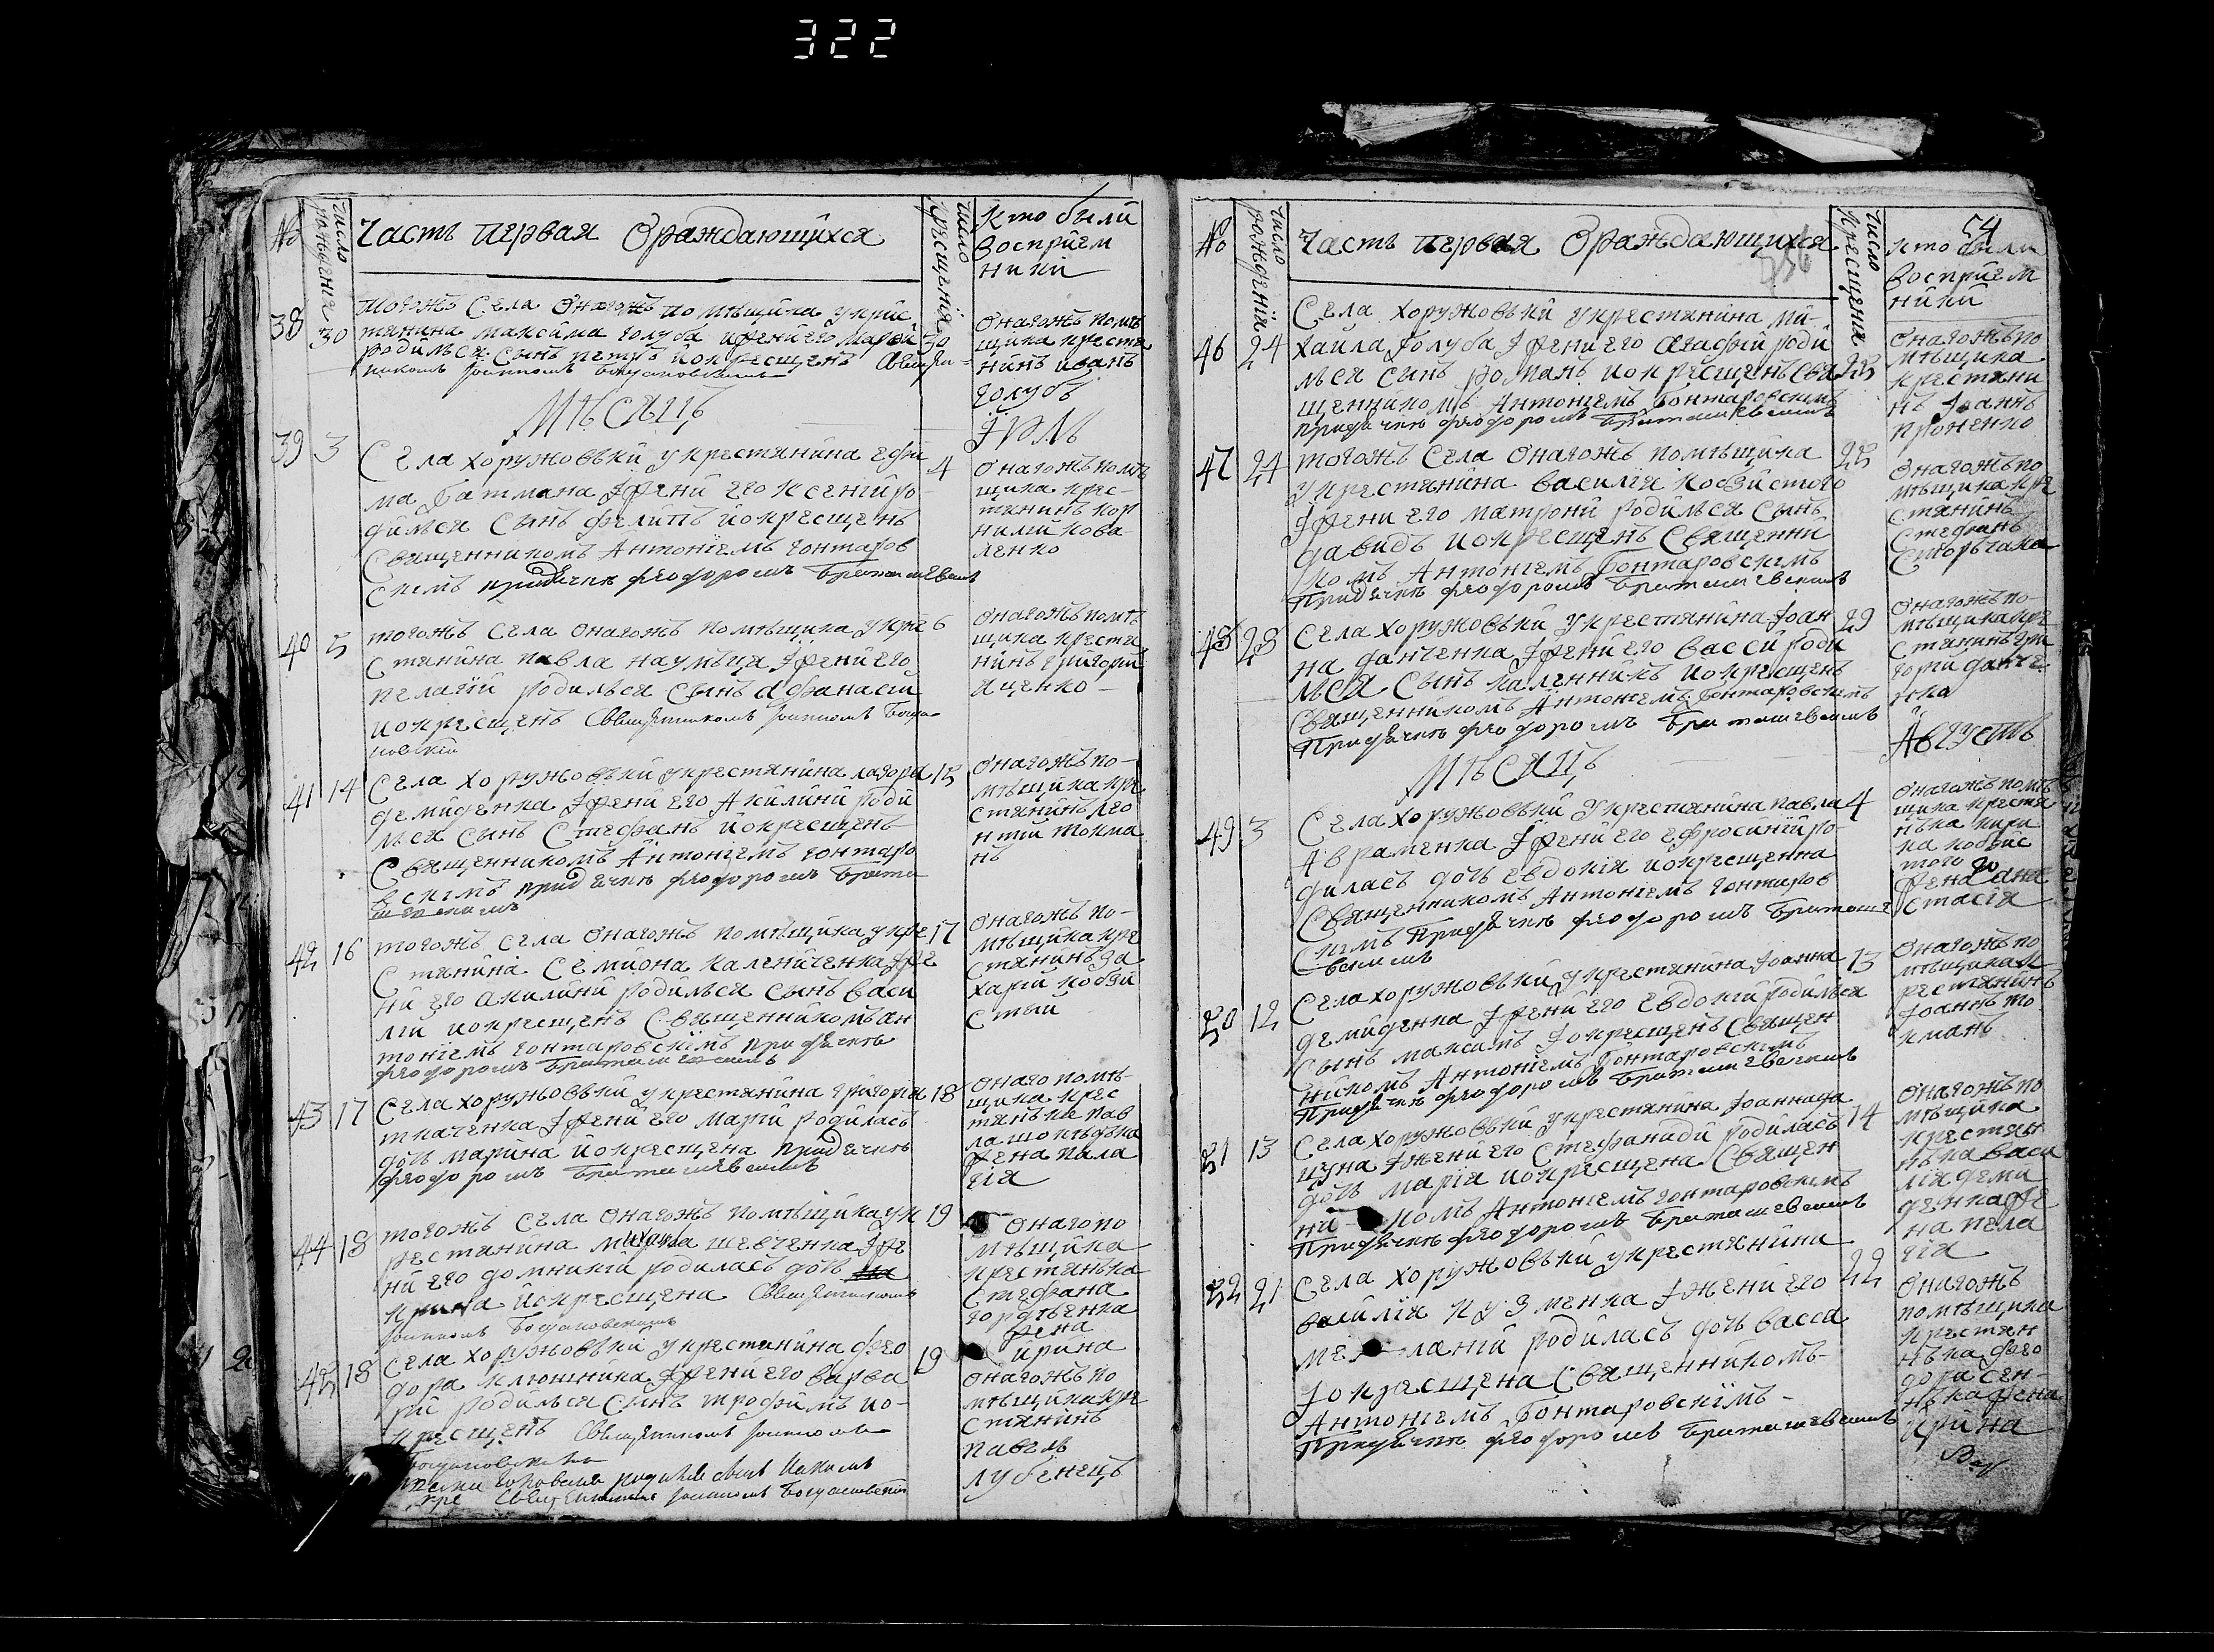 322
№
число рожденія
Часть первая Ораждающихся
число крещенія
кто были
восприем
ники
38
30
тогожъ Села Онагожъ помѣщика укрис
тянина максима голуба ижени его марfiи
30
родилься Сынъ петръ иокрещенъ Священ
никомъ Iоанномъ Богдановскимъ
Онагожъ помѣ
щика крестя
нинъ иванъ
голубъ
Мѣсяцъ
Iюль
39
3
Села хоружовьки укрестянина ефи
ма батмана Iжени его ксении ро
дился Сынъ филипъ иокрещенъ
Священникомъ Антонiемъ гонтаров
скимъ придячкѣ феодоромъ
4
Онагожъ помѣ
щика крес-
тянинъ кор
нилий кова
ленко
40
5
тогожъ Села Онагожъ помѣщика укре
стянина павла наумъца Iжени его
пелагии родилься Сынъ афанасий
иокрещенъ Священникомъ Iоанномъ Богда
новским
6
Онагожъ помѣ
щика крестя
нинъ григорий
яценко
41
14
Села хоружовьки укрестянина лагора
демиденка Iжени его Акилини роди
лься Сынъ Стефанъ иокрещенъ
Священникомъ Антонiемъ гонтаро
вскимъ придячкѣ феодоромъ
15
Онагожъ по-
мѣщика кре
стянинъ лео
нтий токма
нъ
42
16
тогожъ Села Онагожъ помѣщика укре
стянина Семиона каленіченка Iже
ни его акилини родилься Сынъ васи
лій иокрещенъ Священникомъ ан
тонiемъ гонтаровскимъ придячкѣ
феодоромъ
17
Онагожъ по-
мѣщика кре
стянинъ за
харий кобзи
стый
43
17
Села хоружовьки укрестянина григория
ткаченка Iжени его марiи родилась
дочь марина иокрещена придячкѣ
феодоромъ
18
Онаго помѣ-
щика крес
тянька пав
ла
жена пела
гiя
44
18
тогожъ Села Онагожъ помѣщика ук
рестянина михаила шевченка Iже
ни его домникiи родилась дочь
ирина иокрещена Священникомъ
Iоанномъ Богдановскимъ
19
Онаго по
мѣщика
крестянька
Стефана
гордѣенка
жена
ирина
45
18
Села хоружовьки укрестянина фео
дора ключника Iжени его варва
ри родилься Сынъ трофимъ ио-
крещенъ Священникомъ Iоанномъ
Богдановскимъ
19
Онагожъ по
мѣщика кре
стянинъ
павелъ
лубенецъ
№
число рожденія
Часть первая Ораждающихся
756
число крещенія
54
кто были
восприем
ники
46
24
Села хоружовьки укрестянина ми-
хаила голуба Iжени его агафии роди
лься сынъ романъ иокрещенъ Свя
щенникомъ Антонiемъ Гонтаровскимъ
придячкѣ феодоромъ
25
Онагожъ по
мѣщика
крестяни
нъ Iоаннъ
проненко
47
24
тогожъ Села Онагожъ помѣщика
укрестянина василiя кобзистого
Iжени его матрони родилься Сынъ
давидъ иокрещенъ Священни
комъ Антонiемъ Гонтаровскимъ
Придячкѣ феодоромъ
25
Онагожъ по
мѣщика кре
стянинъ
Стефанъ
48
28
Села хоружовьки укрестянина Iоан
на данченка Iжени его васси роди
лься Сынъ каленникъ иокрещенъ
Священникомъ Антонiемъ Гонтаровскимъ
Придячкѣ феодоромъ
29
Онагожъ по-
мѣщика кре
стянинъ гри
горий данче
нко
Мѣсяцъ
Августъ
49
3
Села хоружовьки укрестянина павла
Авраменка Iжени его ефросинiи ро-
дилась дочь евдокiя иокрещенна
Священникомъ Антонiемъ гонтаров
скимъ Придячкѣ феодоромъ
4
Онагожъ помѣ
щика крестя
нька кири
ка кобзис
того
жена ана
стасiя
50
12
Села хоружовьки укрестянина Iоанна
демиденка Iжени его евдокiи родилься
Сынъ максимъ Iокрещенъ Священ
никомъ Антонiемъ Гонтаровскимъ
Придячкѣ феодоромъ
13
Онагожъ по
мѣщика к
рестянинъ
Iоаннъ то
кманъ
51
13
Села хоружовьки укрестянина Iоанна
Iжени его Стефаниди родилась
дочь марiя иокрещена Священ
никомъ Антонiемъ гонтаровскимъ
Придячкѣ феодоромъ
14
Онагожъ по
мѣщика
крестян
нька васи
лiя деми
денка же
на пела
гiя
52
21
Села хоружовьки укрестянина
василiя кузменка Iжени его
меланiи родилась дочь васса
Iокрещена Священникомъ-
Антонiемъ Гонтаровскимъ-
Придячкѣ феодоромъ
22
Онагожъ
помѣщика
крестян
нька фео
дора сен-
нька жена
Ирина